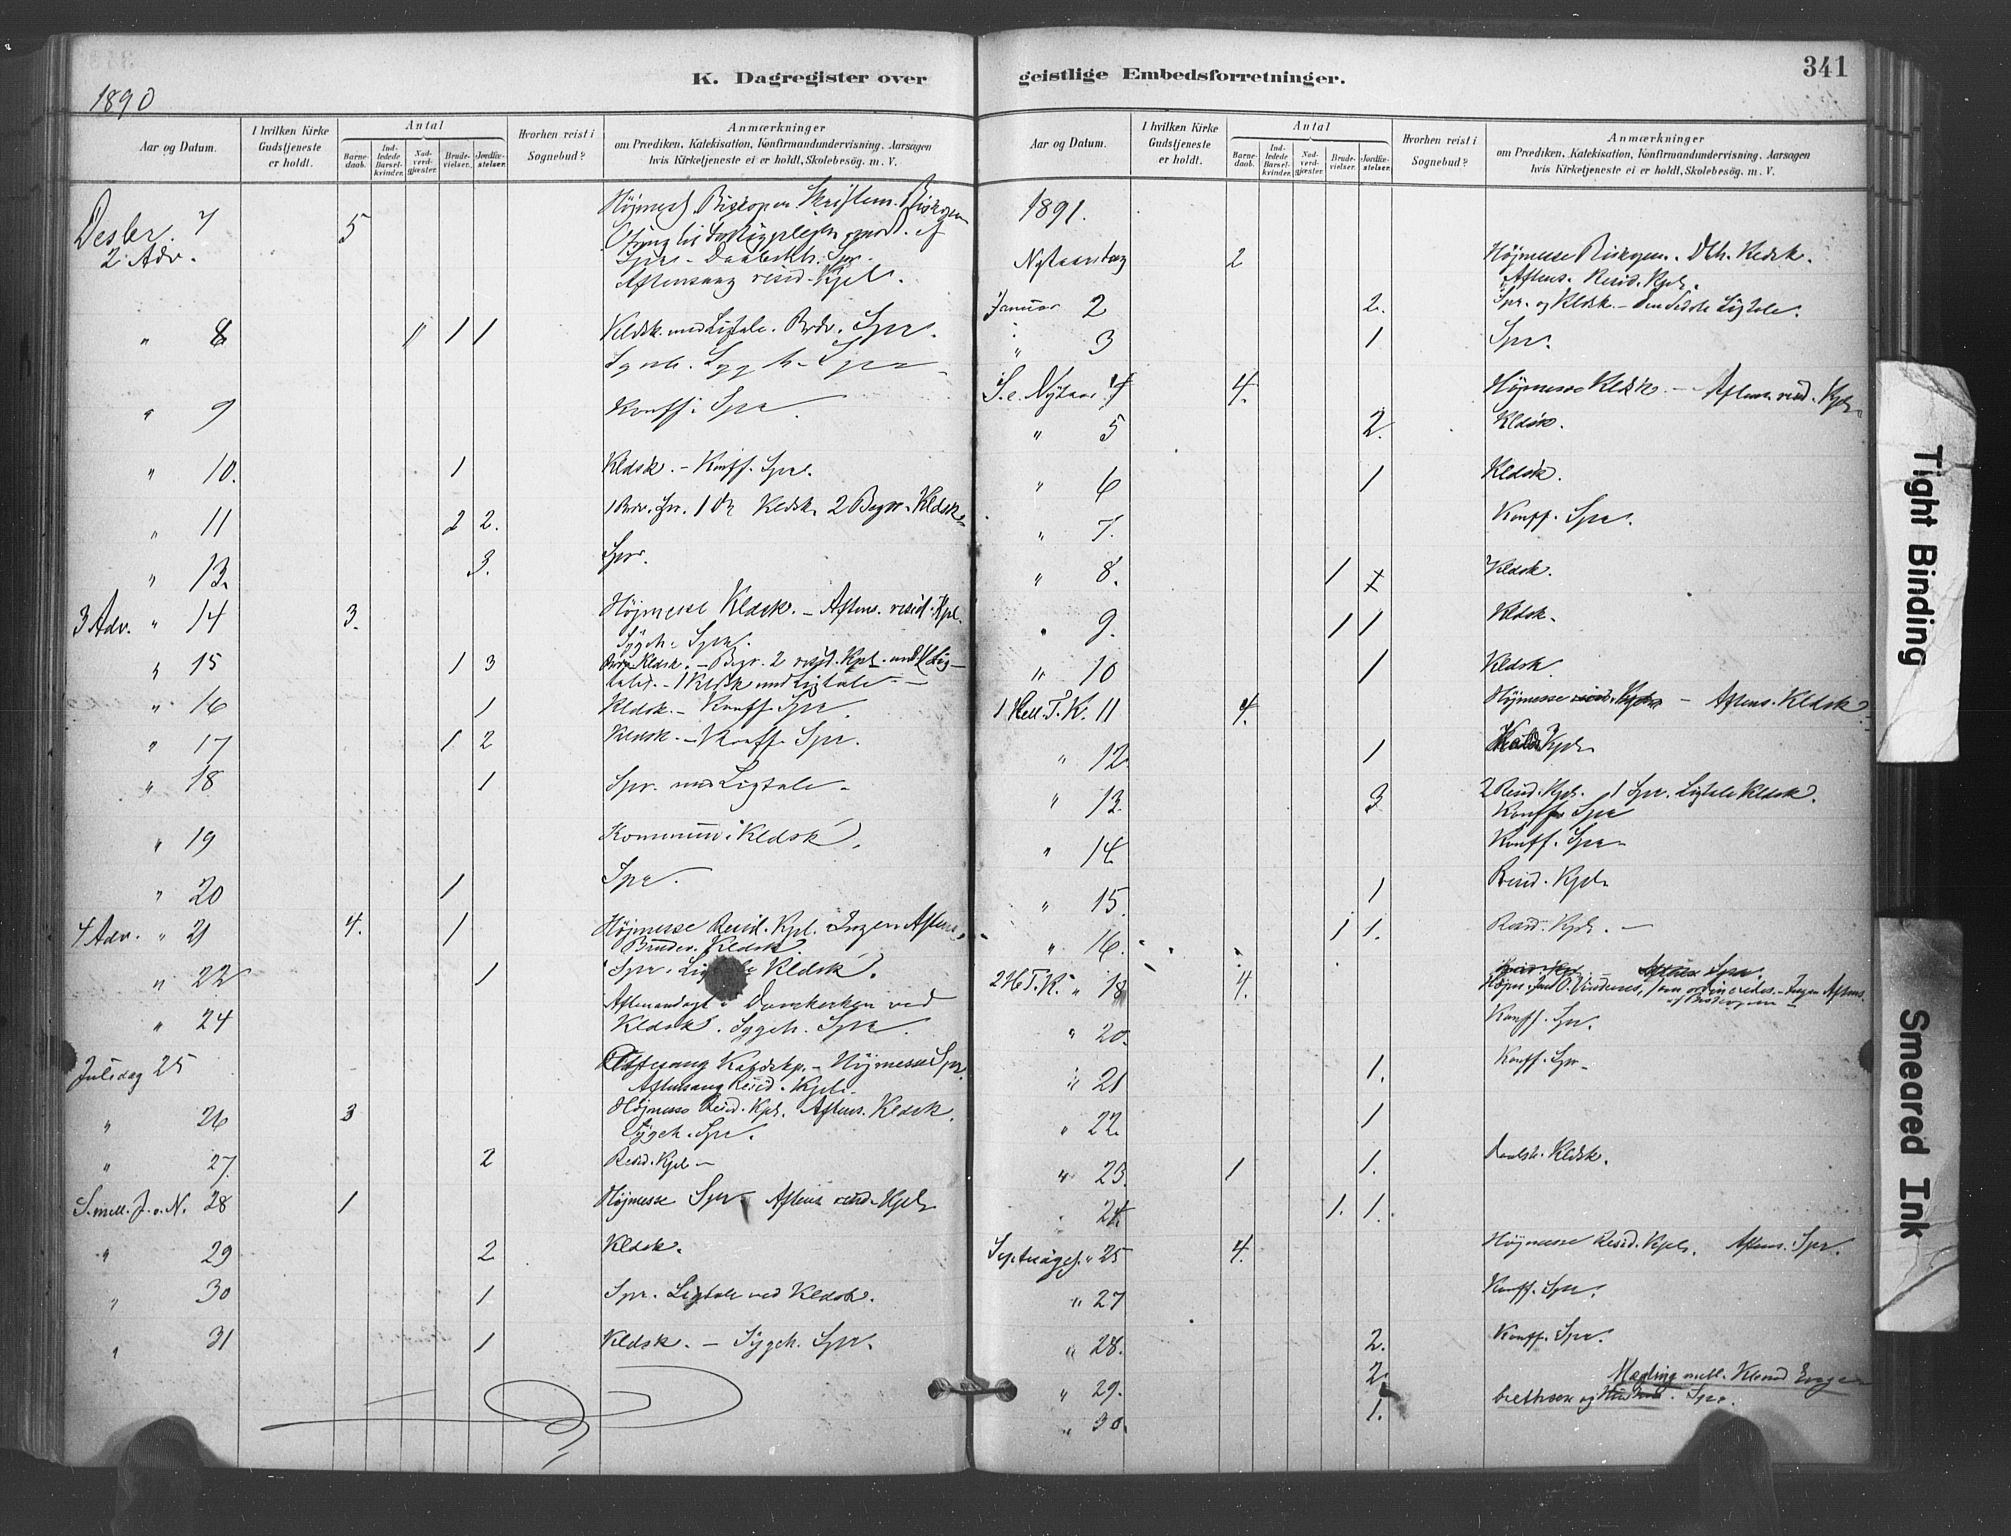 K. Dagregister over
1890
Aar og Datum.
I hvilken Kirke Gudstjeneste er holdt.
Antal
Barnedaab.
Indledede Barselkvinder.
Nadverdgjæster.
Brudevielser.
Jordfæstelser.
Hvorhen reist i Sognebud?
Anmærkninger
om Prædiken, Katekisation, Konfirmandundervisning, Aarsagen
hvis Kirketjeneste ei er holdt, Skolebesøg. m. V.
Desbr. 7 5 Højmesse Biskopen
2 Adv.
Aftensang resid. Kpl.
" 8 " 1 1 Kldsk. med Ligtale. Brdv. Spr.
" 9 Konff. Spr.
" 10. 1 Kldsk. – Konff. Spr.
" 11 2 2. 1 Brdv. Spr. 1 Kldsk. 2 Begr. Kldsk.
" 13. 3. Spr.
3 Adv. " 14 3. Højmesse Kldsk. – Aftens. resid. Kpl.
Sygeh. Spr.
" 15 1 3 Kldsk. – Begr. 2 resid. Kpl. med Lig-
taler. – 1 Kldsk med Ligtale. –
" 16 1 Kldsk. – Konff. Spr.
" 17 1 2 Kldsk. – Konff. Spr.
" 18 1 Spr. med Ligtale.
" 19 Kommun. Kldsk.
" 20 1 Spr.
4 Adv. " 21 4. 1 Højmesse Resid. Kpl. Ingen Aftens.
Brudev. Kldsk
" 22 1 Spr. Kldsk.
Aftenandagt i Domkirken ved
" 24 Kldsk. Sygeh. Spr.
Juledag 25 Ottesang – Højmesse Spr.
Aftensang Resid. Kpl.
" 26 3 Højmesse Resid. Kpl. Aftens. Kldsk.
Sygeh. Spr.
" 27. 2 Resid. Kpl –
S. mell. J. o. N. 28 1 Højmesse Spr Aftens resid. Kpl.
" 29 2 Kldsk.
" 30 1 Spr. Ligtale ved Kldsk.
" 31 1 Kldsk. – Sygeh. Spr.
geistlige Embedsforretninger.
341
Aar og Datum.
I hvilken Kirke Gudstjeneste er holdt.
Antal
Barnedaab.
Indledede Barselkvinder.
Nadverdgjæster.
Brudevielser.
Jordfæstelser.
Hvorhen reist i Sognebud?
Anmærkninger
om Prædiken, Katekisation, Konfirmandundervisning, Aarsagen
hvis Kirketjeneste ei er holdt, Skolebesøg. m. V.
1891.
Nytaarsdag 2 Højmesse Biskopen. Dbh. Kldsk.
Aftens. Resid. Kpl.
Januar 2 2. Spr. og Kldsk – den sidste Ligtale.
" 3 1 Spr.
S. e. Nytaar 4 4. Højmesse Kldsk. – Aftens. resid. Kpl.
" 5 2. Kldsk.
" 6 1 Kldsk.
" 7. Konff. Spr.
" 8. 1 Kldsk.
" 9. 1 1 Kldsk.
" 10 1 Kldsk
1 Hell. T. K. 11 4. Højmesse resid. Kpl. – Aftens. Kldsk
" 12. 1 Kpl.
" 13. 3 2 Resid. Kpl. 1 Spr. Ligtale Kldsk.
Konff. Spr
" 14. Konff. Spr.
" 15. 1 Resid. Kpl.
" 16. 1 1. Resid. Kpl. –
Aftens Spr.
2 H. T. K. " 18 4. Højm. Vindenes, som ordineredes. – Ingen Aftens.
af Biskopen
" 20. Konff. Spr.
" 21 1. Konff. Spr.
" 22. 1
" 23. 1 1. Daabsh. Kldsk.
" 24. 1. 1.
Septuages. " 25 4. Højmesse Resid. Kpl. Aftens. Spr.
" 27 Konff. Spr.
" 28. 2. Konff. Spr.
" 29. 2. Mægling mell.
" 30. 1. og Hustru. Spr.
Tight Binding
Smeared Ink